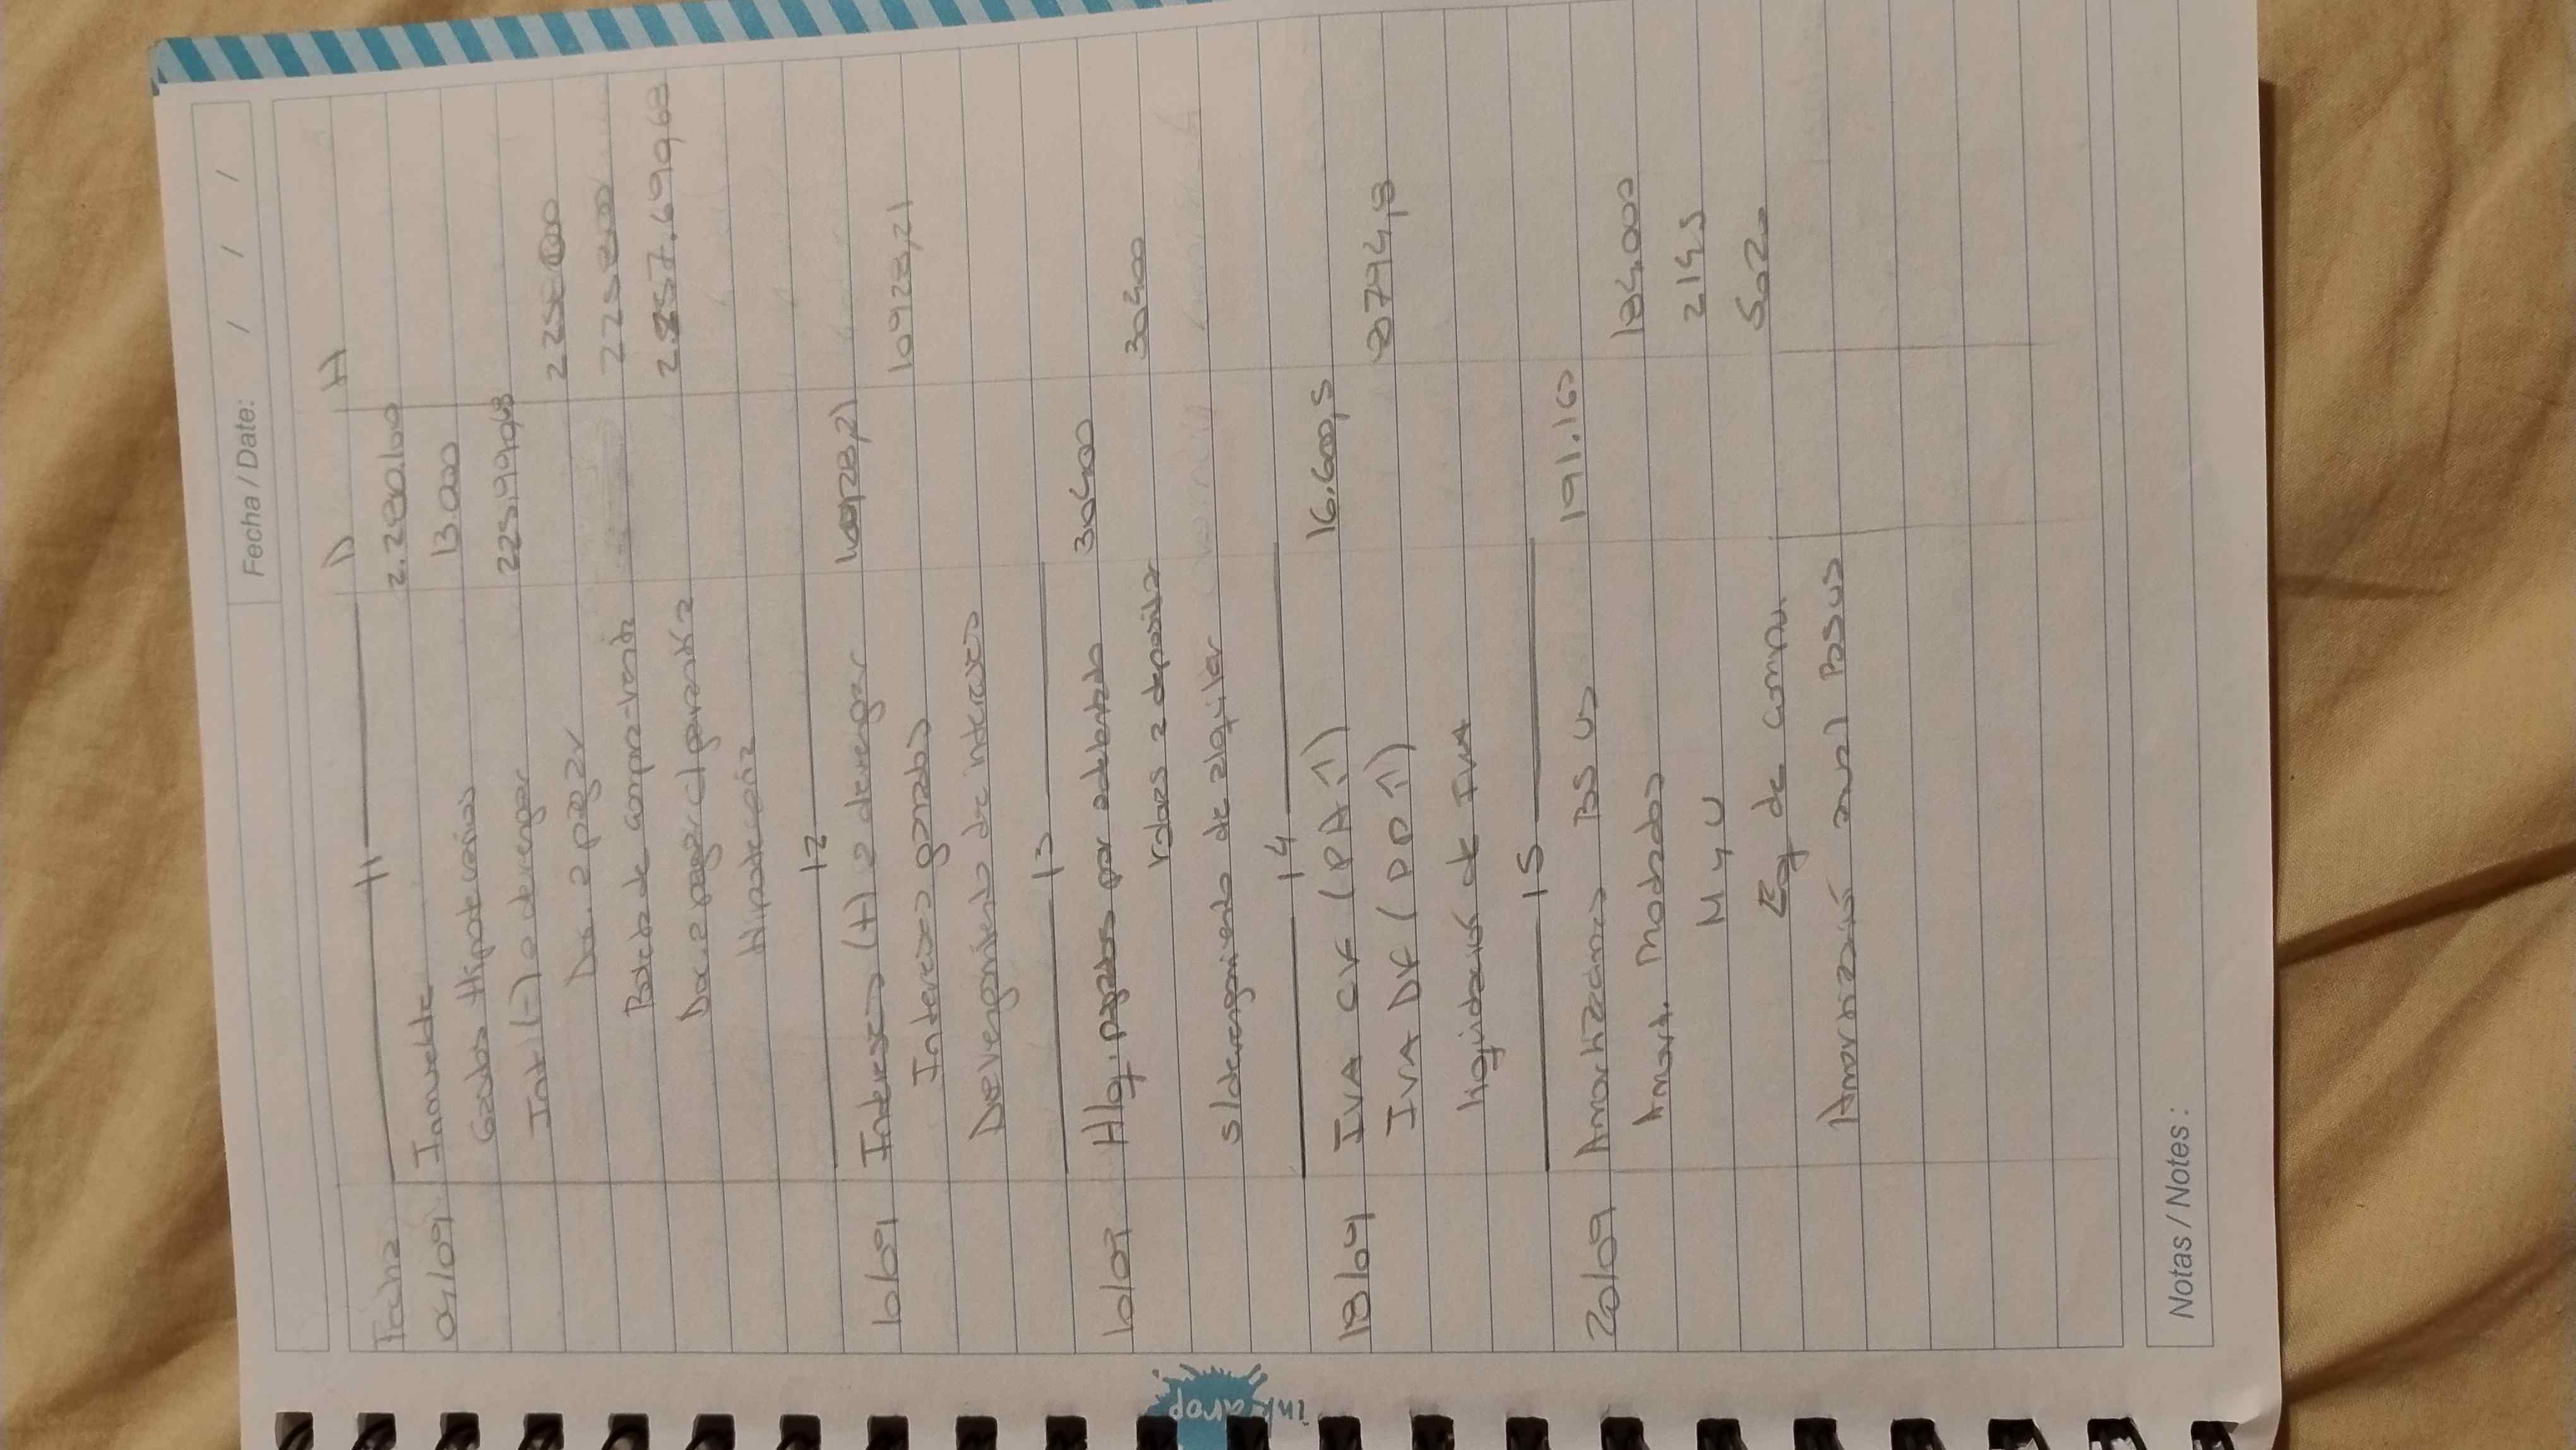 Fecha / Date: / / /
Fecha D H
11
04/09 Inmueble 2.280.100
Gastos Hipotecarios 13.000
Int (-) a devengar
Doc. a pagar
Boleto de compra-venta
Doc. a pagar c/ garantía
Hipotecaria
12
10/09 Intereses (+) a devengar 10928,21
Intereses ganados 10928,21
Devengamiento de intereses
13
10/09 Alq. pagados por adelantado 30400
30400
s/devengamiento de alquiler
14
18/09 IVA CF (PA↓) 16.600,5
IVA DF (PP↑) 8794,8
liquidación de IVA
15
20/09 Amortizaciones BS US 191.160
Amort. Rodados 184.000
M y U 2145
Eq de comp. 5020
Amortización anual BS US
Notas / Notes:
inkdrop